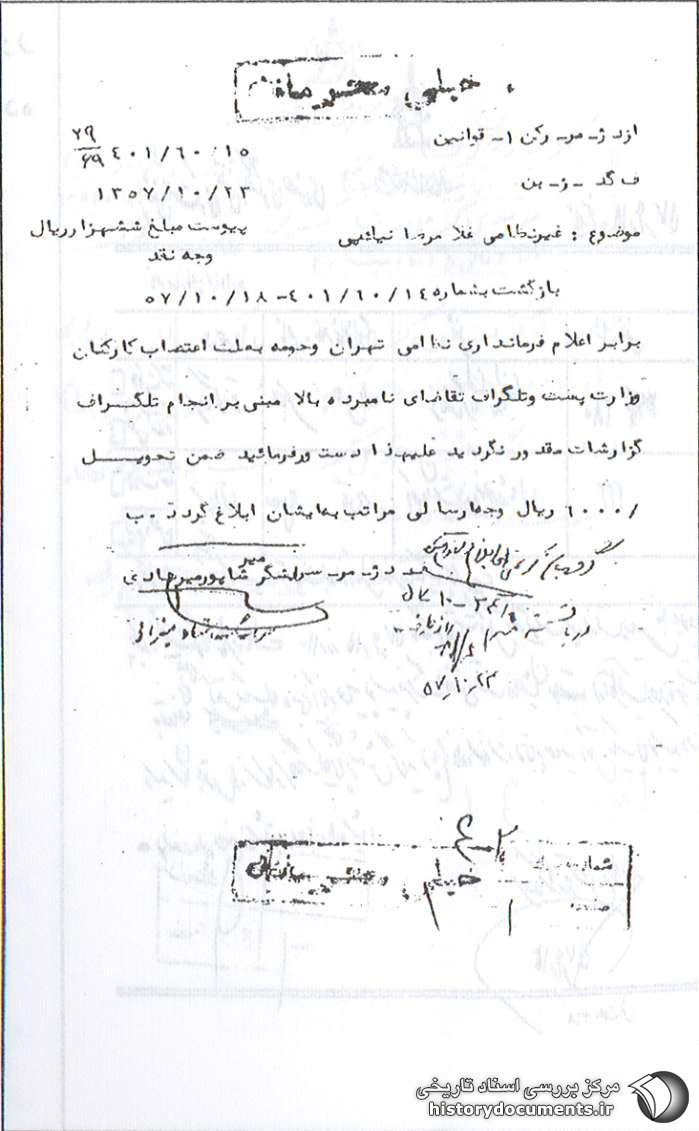 خیلی محرمانه
از د ژ ـ مر ـ رکن ۱ ـ قوانین
۴۰۱/۶۰/۱۵
ف گد ـ ژ ـ بن
۱۳۵۷/۱۰/۲۳
موضوع : غیرنظامی غلامرضا نیائیی
پیوست مبلغ ششهزار ریال
وجه نقد
بازگشت بشماره ۴۰۱/۶۰/۱۴ - ۵۷/۱۰/۱۸
برابر اعلام فرمانداری نظامی تهران وحومه بعلت اعتصاب کارکنان
وزارت پست وتلگراف تقاضای نامبرده بالا مبنی بر انجام تلگراف
گزارشات مقدور نگردید علیهذا دستور فرمائید ضمن تحویل
۶۰۰۰/ ریال وجه ارسالی مراتب بمایشان ابلاغ گردد
د ژ ـ مر ـ سرلشگر شاپور میرهادی
۵۷ـ۱۰ـ۲۳
شماره
خیلی محرمانه
صفحه ۱
مرکز بررسی اسناد تاریخی
historydocuments.ir